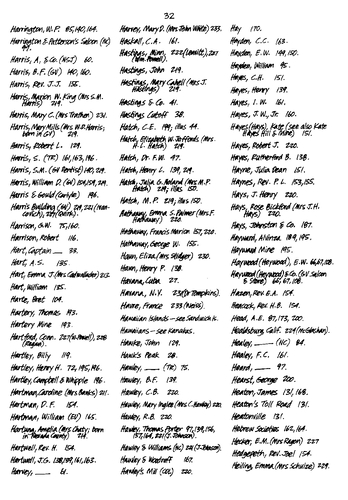 32
Harrington, W.P. 85, 140, 164.
Harrington & Patterson's Saloon (NC)
Harris, A. & Co. (NSJ) 60.
Harris, B.F. (GV) 140, 160.
Harris, Rev. J.J. 155.
Harris, Marion W. King (Mrs S.M. Harris) 219.
Harris, Mary C. (Mrs 231.
Harris, Mary Mills (Mrs W.D. Harris; born in GV) 219.
Harris, Robert L. 129.
Harris, S. (TR) 161, 163, 196.
Harris, S.M. (GV Dentist) 140, 219.
Harris, William D. (GV) 219.
Harris & Gould 196.
Harris Building (GV)
Harrison, G.W. 75, 160.
Harrison, Robert 116.
Hart, Captain ___ 33.
Hart, A.S. 135.
Hart, Emma J. 213.
Hart, William 135.
Harte, Bret 104.
Hartery, Thomas 193.
Hartery Mine 193.
Hartford, Conn.
Hartley, Billy 119.
Hartley, Henry H. 172, 195, 196.
Hartley, Campbell & Whipple 196.
Hartman, Caroline (Mrs Banks) 211.
Hartman, D.F. 154.
Hartman, William (EU) 165.
Hartung, Amelia (Mrs born in Nevada County) 219.
Hartwell, Rev. H. 154.
Hartwell, J.G. 161, 163.
Harvey, ___ 61.
Harvey, Mary D. (Mrs John White) 233.
Haskall, C.A. 161.
Hastings, Minn.
Hastings, John 219.
Hastings, Mary Cahill (Mrs J. Hastings) 219.
Hastings & Co. 41.
Hastings Cutoff 38.
Hatch, C.E. 199, illus 44.
Hatch, Elizabeth W. (Mrs. H.L. Hatch) 219.
Hatch, Dr. F.W. 47.
Hatch, Henry L. 139, 219.
Hatch, Julia G. (Mrs M.P. Hatch) 219; illus 150.
Hatch, M.P. 219, illus 150.
Hathaway, Emma S. Palmer (Mrs F. Hathaway) 220.
Hathaway, Francis Marion 157, 220.
Hathaway, George W. 155.
Haun, Eliza (Mrs 230.
Haun, Henry P. 138.
Havana, Cuba 27.
Havana, N.Y. 231 (Tompkins).
Havre, France 233
Hawaiian Islands—see Sandwich.
Hawaiians—see Kanakas.
Hawke, John 129.
Hawk's Peak 28.
Hawley, ___ (TR) 75.
Hawley, B.F. 139.
Hawley, C.B. 220.
Hawley, Mary Ingles (Mrs C. Hawley) 220.
Hawley, R.B. 220.
Hawley, Thomas Porter 97, 139, 156, 157, 164, 221 (J. Johnson).
Hawley & Williams (NC) 221 (J. Johnson).
Hawley & 167.
Hawley's Mill (CO) 220.
Hay 170.
Hayden, C.C. 163.
Hayden, E.W. 149, 150.
Hayden, William 95.
Hayes, C.H. 151.
Hayes, Henry 139.
Hayes, I.W. 161.
Hayes, J.W., Jr. 160.
Hayes (Hays), Kate (see also Kate Hayes Hill & Mine) 151.
Hayes, Robert J. 220.
Hayes, Rutherford B. 138.
Hayne, Julia Dean 151.
Haynes, Rev. P.L. 153, 155.
Hays, J. Henry 220.
Hays, Rose Bickford (Mrs J.H. Hays) 220.
Hays, Johnston & Co. 187.
Hayward, Alvinza 189, 195.
Hayward Mine 195.
Haywood (Heywood), E.W. 66, 67, 128.
Haywood (Heywood) & Co. (GV Saloon & Store) 66, 67, 128.
Hazen, Rev. E.A. 154.
Heacock, Rev. H.B. 154.
Head, A.E. 87, 173, 200.
Healdsburg, Calif. 224
Healey, ___ (NC) 84.
Healey, F.C. 161.
Heard, ___ 97.
Hearst, George 200.
Heaton, James 131, 168.
Heaton's Toll Road 131.
Heatonville 131.
Hebrew Societies 162, 164.
Hecker, E.M. (Mrs Ragon) 227
Hedgepeth, Rev. Joel 154.
Heiling, Emma (Mrs Schulze) 229.